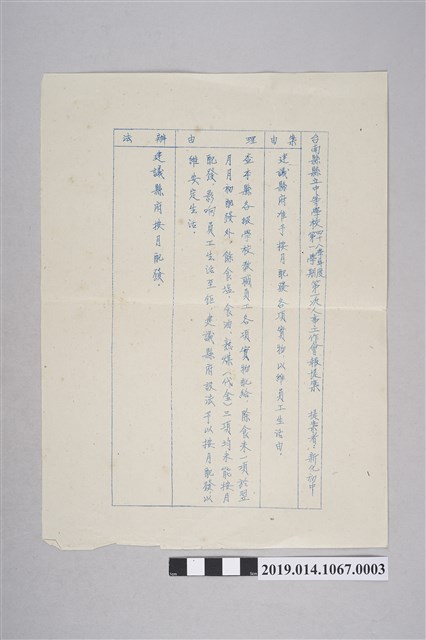 台南縣縣立中等學校四八學年度第一學期第一次人事工作會報提案　提案者：新化初中
案由
建議縣府准予按月配發各項實物，以維員工生活由。
理由
查本縣各級學校教職員工各項實物配給，除食米一項於翌
月月初配發外，餘食塩、食油、熟煤（代金）三項均未能按月
配發，影响員工生活至鉅，建議縣府設法予以按月配發以
維安定生活。
辦法
建議縣府按月配發。
2019.014.1067.0003